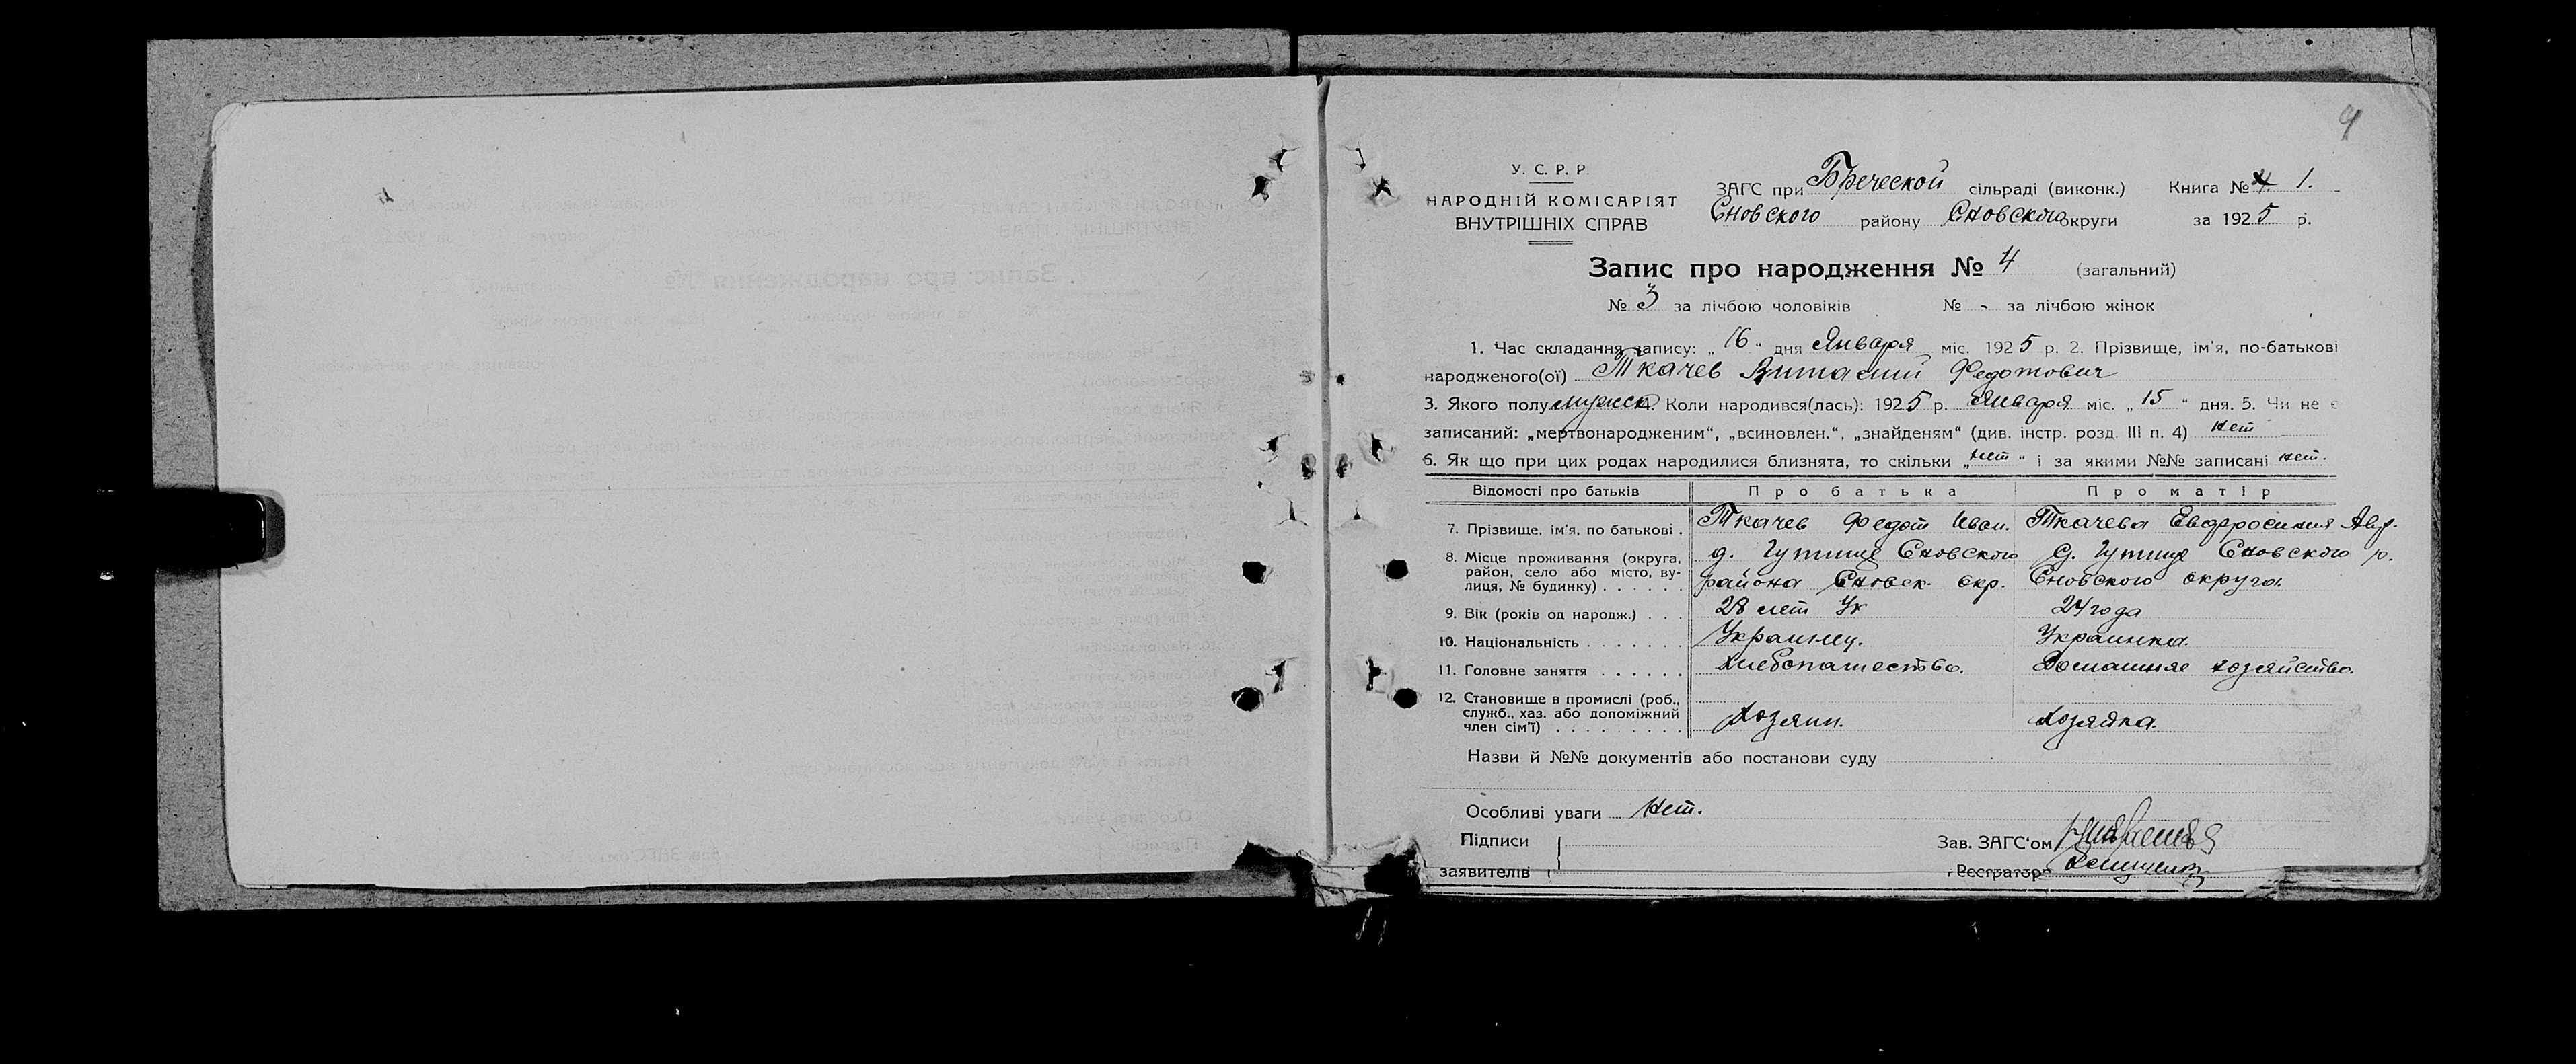 9
У. С. Р. Р.
НАРОДНІЙ КОМІСАРІЯТ
ВНУТРІШНІХ СПРАВ
ЗАГС при Бреческой сільраді (виконк.) Книга № 1.
Сновского району Сновского округи за 1925 р.
Запис про народження № 4 (загальний)
№ 3 за лічбою чоловіків № - за лічбою жінок
1. Час складання запису: „16“ дня Января міс. 1925 р. 2. Прізвище, ім'я, по-батькові
народженого(ої) Ткачев Виталий Федотович
3. Якого полу мужск. 4. Коли народився(лась): 1925 р. Января міс. „15“ дня. 5. Чи не є
записаний: „мертвонародженим“, „всиновлен.“, „знайденям“ (див. інстр. розд. III п. 4) нет
6. Як що при цих родах народилися близнята, то скільки „нет“ і за якими №№ записані нет.
Відомості про батьків Про батька Про матір
7. Прізвище, ім'я, по батькові . Ткачев Федот Иван. Ткачева Евфросиния
8. Місце проживання (округа, район, село або місто, вулиця, № будинку) . . . . . . д. Гутище Сновского района Сновск. окр. д. Гутище Сновского р. Сновского округа.
9. Вік (років од народж.) . . . 28 лет Ук 24 года
10. Національність . . . . . . . Украинец. Украинка.
11. Головне заняття . . . . . . Хлебопашество. Домашнее хозяйство.
12. Становище в промислі (роб., служб., хаз. або допоміжний член сім'ї) . . . . . . . . . Хозяин. Хозяйка.
Назви й №№ документів або постанови суду
Особливі уваги Нет.
Підписи
заявителів
Зав. ЗАГС'ом
Реєстратор